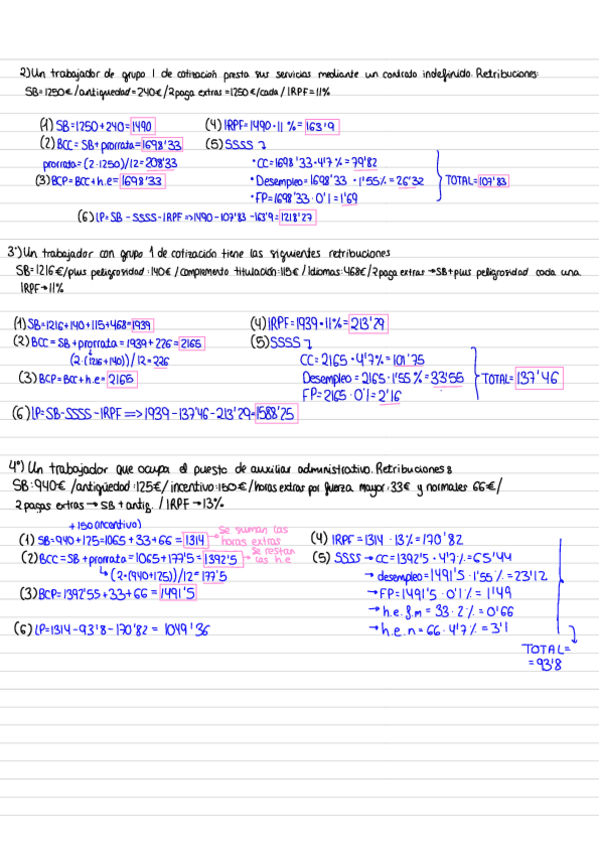 2) Un trabajador de grupo 1 de cotización presta sus servicios mediante un contrato indefinido. Retribuciones:
SB=1250€/antigüedad=240€/2 paga extras=1250€/cada/IRPF=11%
(1) SB=1250+240=1490
(4) IRPF=1490·11%=163'9
(2) BCC=SB+prorrata=1698'33
(5) SSSS
prorrata=(2·1250)/12=208'33
·CC=1698'33·4'7%=79'82
(3) BCP=BCC+h.e=1698'33
·Desempleo=1698'33·1'55%=26'32
TOTAL=107'83
·FP=1698'33·0'1=1'69
(6) LP=SB-SSSS-IRPF=>1490-107'83-163'9=1218'27
3º) Un trabajador con grupo 1 de cotización tiene las siguientes retribuciones
SB=1216€/plus peligrosidad:140€/complemento titulación:115€/Idiomas:468€/2 paga extras→SB+plus peligrosidad cada una
IRPF→11%
(1) SB=1216+140+115+468=1939
(4) IRPF=1939·11%=213'29
(2) BCC=SB+prorrata=1939+226=2165
(5) SSSS
(2·(1216+140))/12=226
CC=2165·4'7%=101'75
(3) BCP=BCC+h.e=2165
Desempleo=2165·1'55%=33'55
TOTAL=137'46
FP=2165·0'1=2'16
(6) LP=SB-SSSS-IRPF=>1939-137'46-213'29=1588'25
4º) Un trabajador que ocupa el puesto de auxiliar administrativo. Retribuciones:
SB:940€/antigüedad:125€/incentivo:150€/horas extras por fuerza mayor:33€ y normales 66€/
2 pagas extras→SB+antig. /IRPF→13%
+150(incentivo)
(1) SB=940+125=1065+33+66=1314
→se suman las
horas extras
(4) IRPF=1314·13%=170'82
(2) BCC=SB+prorrata=1065+177'5=1392'5
→se restan
las h.e
(5) SSSS→CC=1392'5·4'7%=65'44
(2·(940+125))/12=177'5
→desempleo=1491'5·1'55%=23'12
(3) BCP=1392'55+33+66=1491'5
→FP=1491'5·0'1%=1'49
→h.e.f.m=33·2%=0'66
(6) LP=1314-93'8-170'82=1049'36
→h.e.n=66·4'7%=3'1
TOTAL=
=93'8